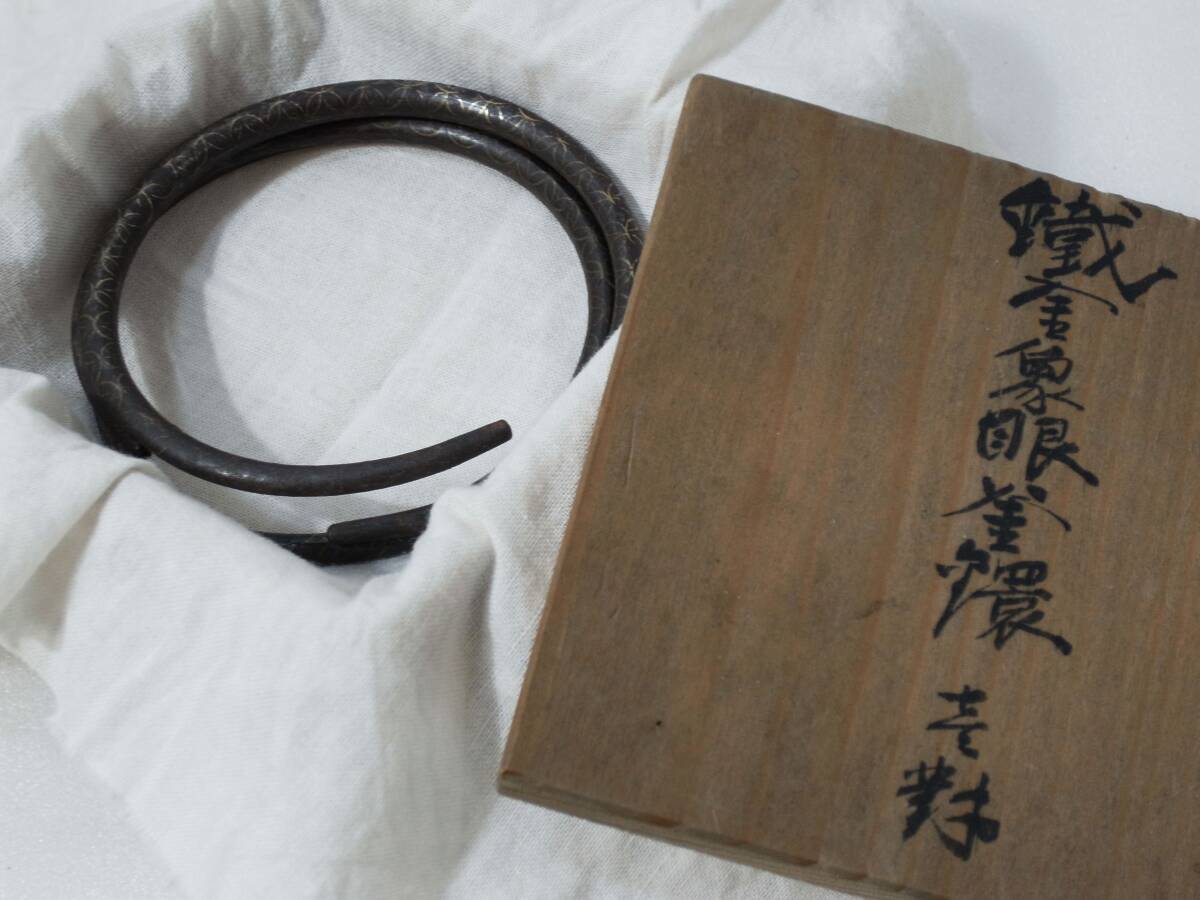 鐵金象眼釜鐶 壱對